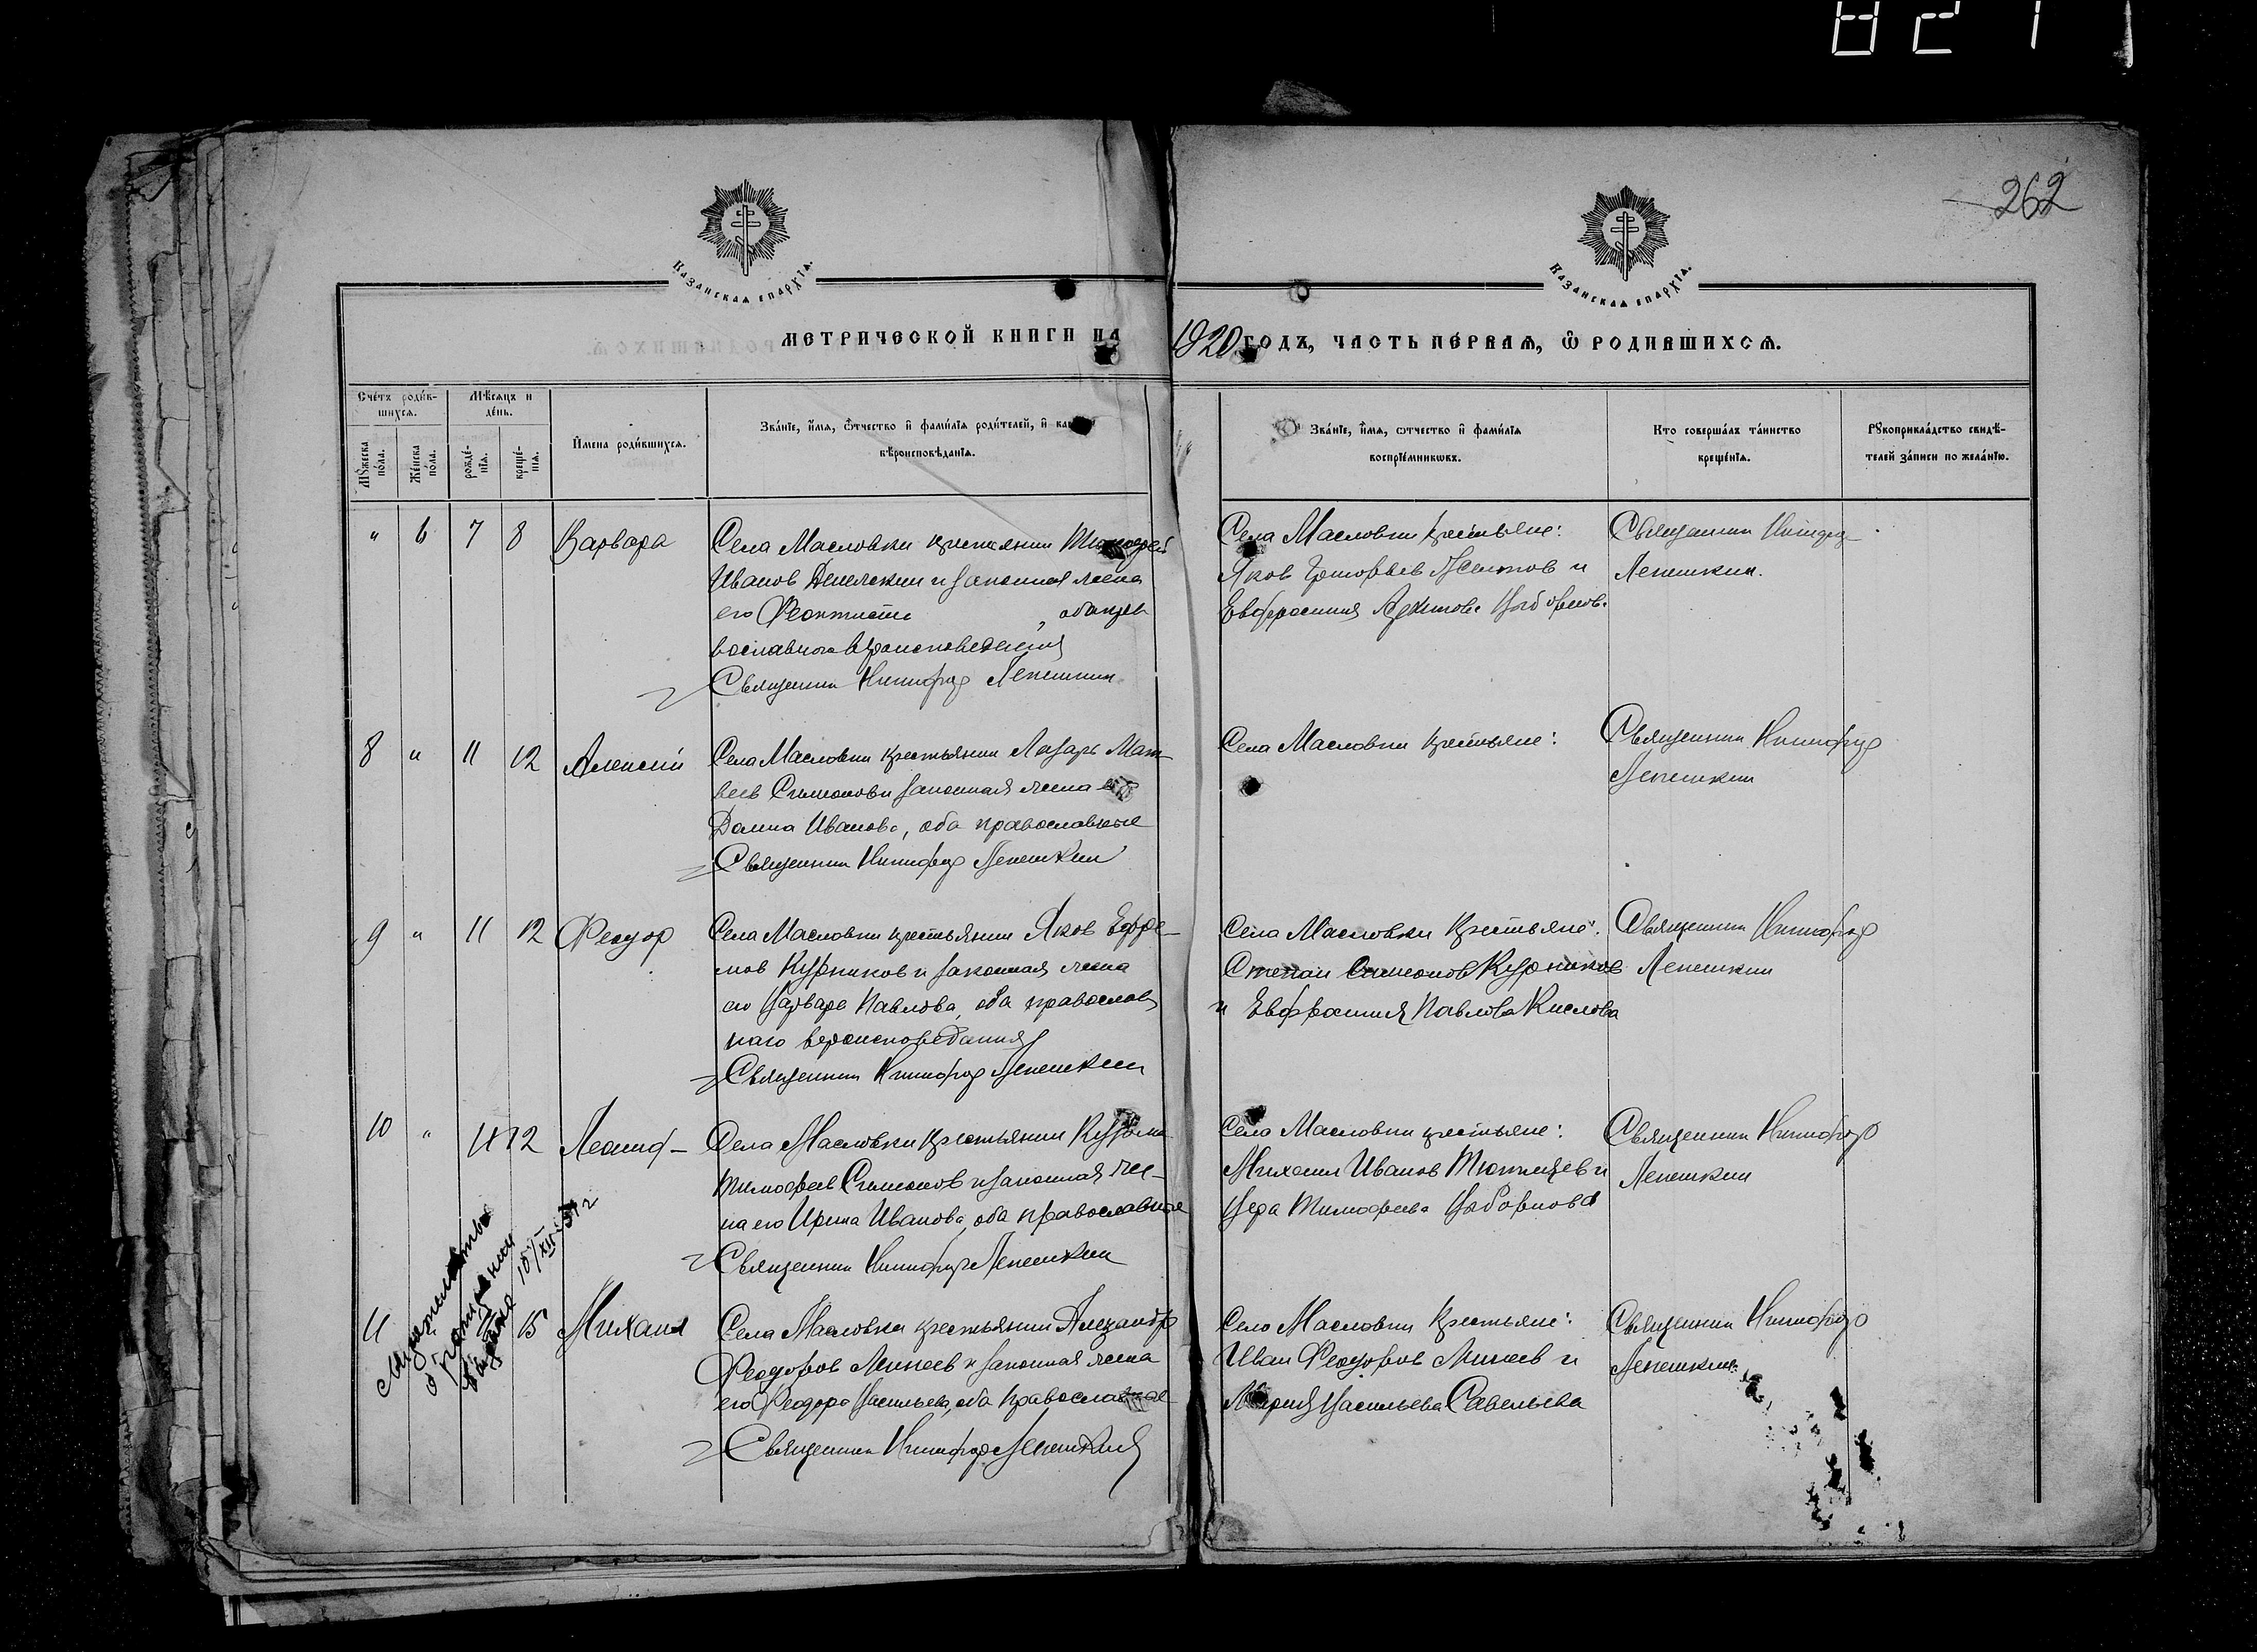 821
262
Казанская епархїѧ.
Казанская епархїѧ.
МЕТРИЧЕСКОЙ КНИГИ НА 1920 ГОДЪ, ЧАСТЬ ПЕРВАЯ, Ѡ РОДИВШИХСЯ.
Счетъ родив-
шихся.
Мѣсяцъ и
день.
Мꙋжеска
пола.
Женска
пола.
рожде-
нїя.
креще-
нїя.
Имена родившихся.
Званїе, имя, ѿтчество и фамилїя родителей, и
вѣроисповѣданїя.
Званїе, имя, ѿтчество и фамилїя
воспрїемникѡвъ.
Кто совершалъ таинство
крещенїя.
Рꙋкоприкладство свидѣ-
телей записи по желанїю.
" 6 7 8 Варвара
Села Масловки крестьянин
Иванов и законная жена
его Феоктиста
вославного вероисповедания
Священник Никифор Лепешкин
Села Масловки крестьяне:
Яков Григорьев и
Евфросиния
Священник Никифор
Лепешкин.
8 " 11 12 Алексий
Села Масловки крестьянин Лазарь Мат-
веев Симонов и законная жена его
Домна Иванова, оба православные
Священник Никифор Лепешкин
Села Масловки крестьяне:
Священник Никифор
Лепешкин
9 " 11 12 Феодор
Села Масловки крестьянин Яков Ефре-
мов Курников и законная жена
его Варвара Павлова, оба православ
наго вероисповедания
Священник Никифор Лепешкин
Села Масловки крестьяне:
Степан Симонов Курников
и Евфросиния Павлова Кислова
Священник Никифор
Лепешкин
10 " 11 12 Леонид
Села Масловки крестьянин Кузьма
Тимофеев Симонов и законная же-
на его Ирина Иванова, оба православные
Священник Никифор Лепешкин
Села Масловки крестьяне:
Михаил Иванов и
Вера Тимофеева
Священник Никифор
Лепешкин
11 15 Михаил
о рождении
выдано
Села Масловки крестьянин Александр
Феодоров Минеев и законная жена
его Феодора Васильева, оба православные
Священник Никифор Лепешкин
Село Масловки крестьяне:
Иван Феодоров Минеев и
Мария Васильева Савельева
Священник Никифор
Лепешкин